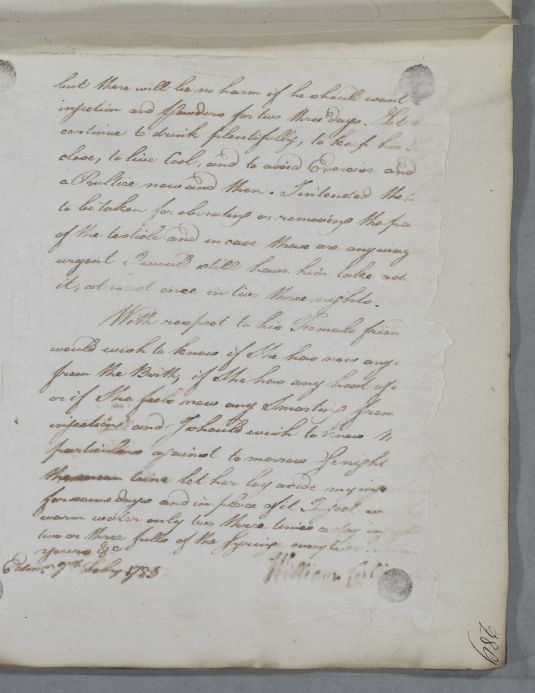 but there will be no harm if he should want
injection and Powders for two three days. Let
continue to drink plentifully, to keep his
close, to live Cool, and to avoid Exercise and
a Poultice now and then. I intended the
to be taken for obviating or removing the pa
of the testicle and in case these are anyway
urgent I would still have him take
it, at least once in two three nights.
With respect to his Female frien
would wish to know if She has now any
from the Birth, if She has any heat
or if She feels now any Smarting from
injections and I should wish to know
particulars against to morrow Senight
time let her lay aside my inje
for some days and in place of it Inject
warm water only two three times a day
two or three fulls of the Syringe every time
yours &c
Edinr. 9th July 1785 William Cull
289